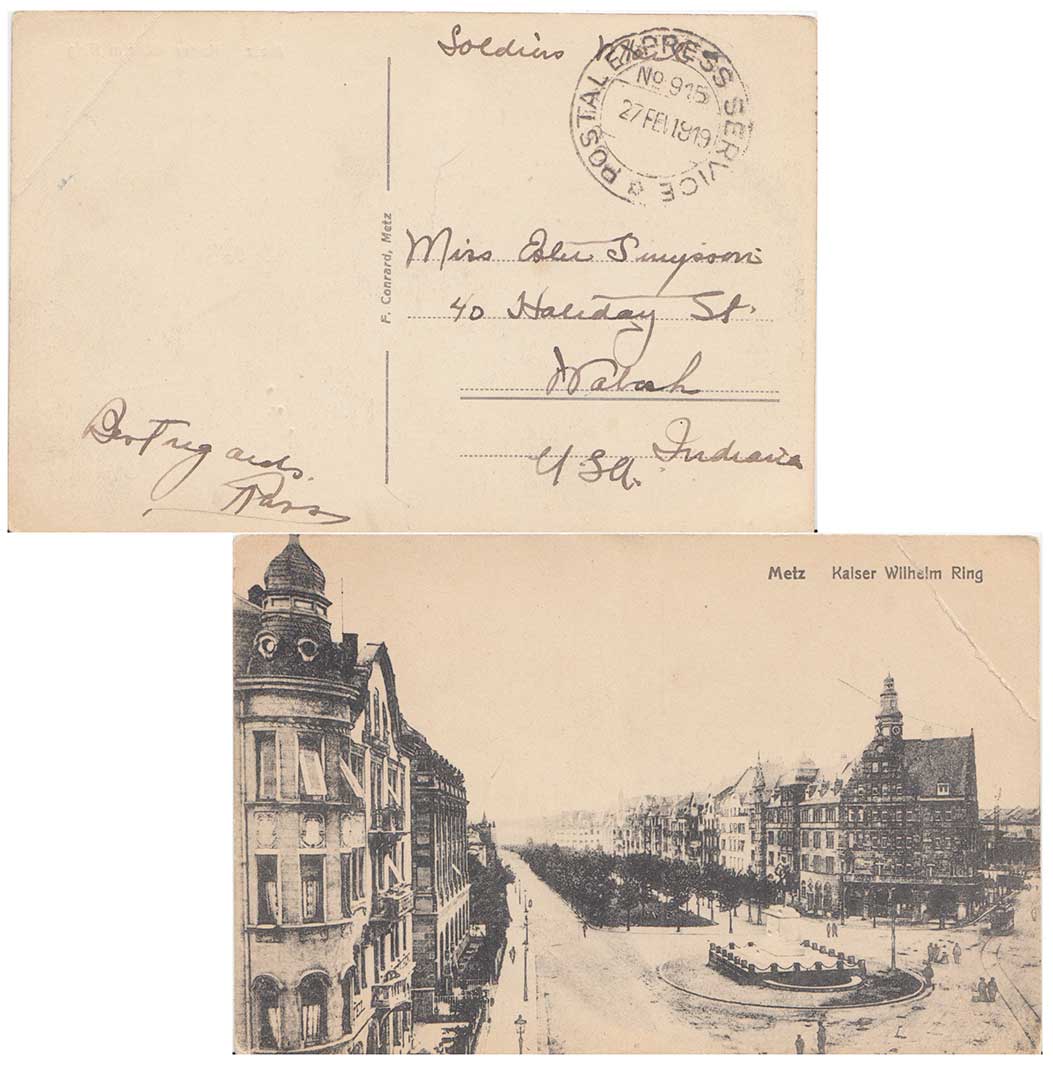 Soldiers Mail
POSTAL EXPRESS SERVICE
No 915
27 FEV 1819
F. Conrard, Metz
Miss Simpson
40 Haliday St.
Wabash
Indiana
USA.
Best regards.
Metz Kaiser Wilhelm Ring